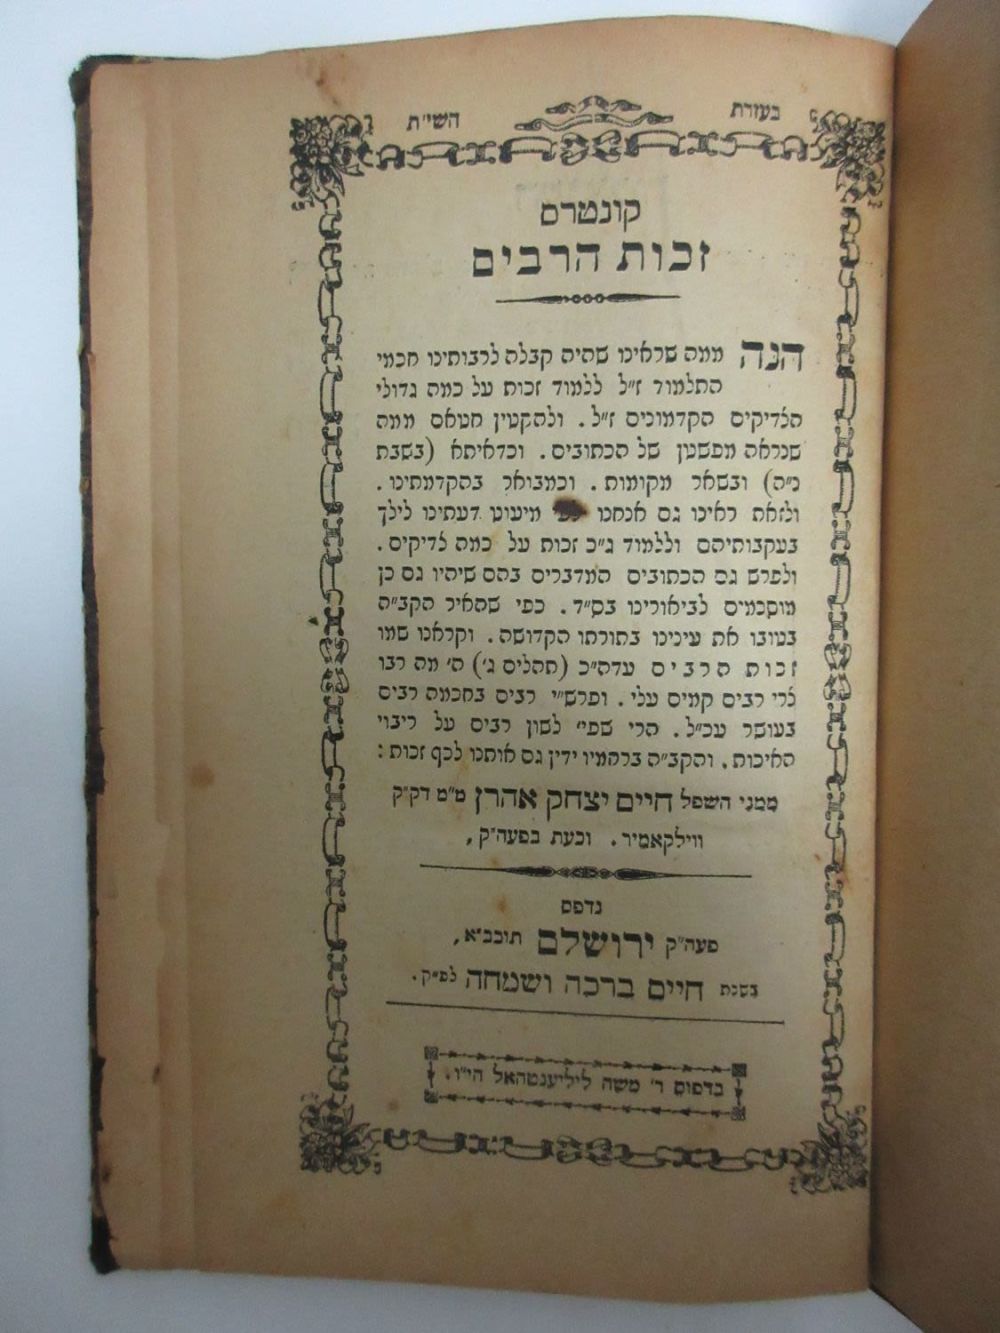 בעזרת השי״ת
קונטרס
זכות הרבים
הנה ממה שראינו שהיה קבלה לרבותינו חכמי
התלמוד ז״ל ללמוד זכות על כמה גדולי
הצדיקים הקדמונים ז״ל. ולהקטין חטאם ממה
שנראה מפשטן של הכתובים. וכדאיתא (בשבת
נ״ה) ובשאר מקומות. וכמבואר בהקדמתינו.
ולזאת ראינו גם אנחנו לפי מיעוט דעתינו לילך
בעקבותיהם וללמוד ג״כ זכות על כמה צדיקים.
ולפרש גם הכתובים המדברים בהם שיהיו גם כן
מוסכמים לביאורינו בס״ד. כפי שהאיר הקב״ה
בטובו את עינינו בתורתו הקדושה. וקראנו שמו
זכות הרבים עדה״כ (תהלים ג׳) ה׳ מה רבו
צרי רבים קמים עלי. ופרש״י רבים בחכמה רבים
בעושר עכ״ל. הרי שפי׳ לשון רבים על ריבוי
האיכות. והקב״ה ברחמיו ידין גם אותנו לכף זכות:
ממני השפל חיים יצחק אהרן מ״מ דק״ק
ווילקאמיר. וכעת בפעה״ק,
נדפס
פעה״ק ירושלם תובב״א,
בשנת חיים ברכה ושמחה לפ״ק.
בדפוס ר׳ משה ליליענטהאל הי״ו.